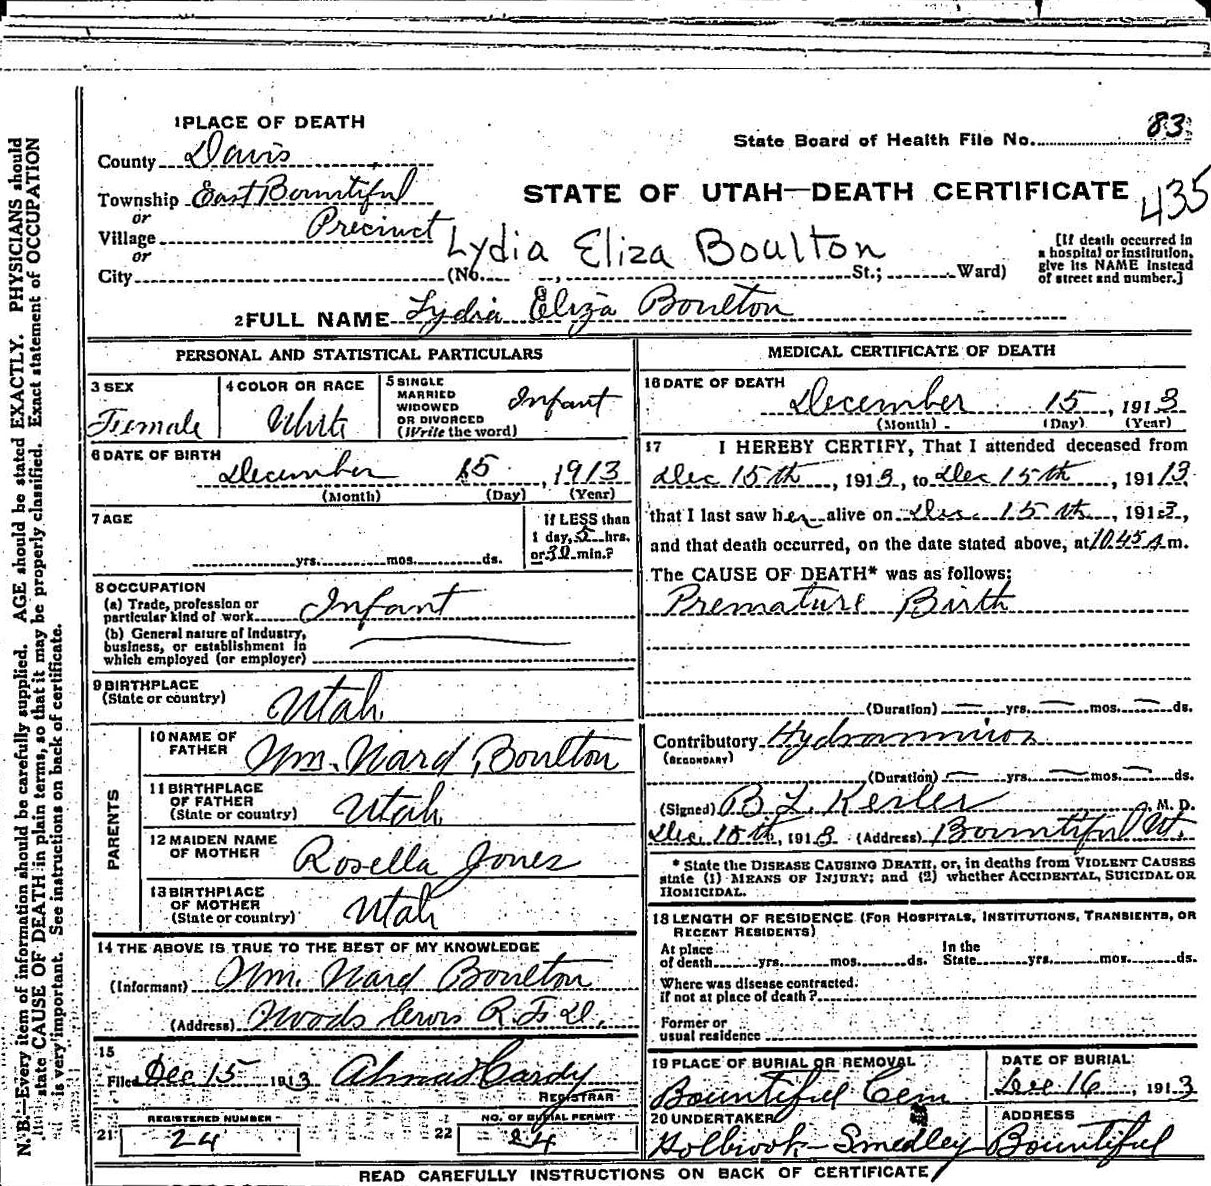 1 PLACE OF DEATH
State Board of Health File No. 83
County Davis
Township East Bountiful
STATE OF UTAH—DEATH CERTIFICATE 435
or
Village Precinct
or
Lydia Eliza Boulton
City (No. , St.; Ward)
[If death occurred in
a hospital or institution,
give its NAME instead
of street and number.]
2 FULL NAME Lydia Eliza Boulton
PERSONAL AND STATISTICAL PARTICULARS
3 SEX
Female
4 COLOR OR RACE
White
5 SINGLE
MARRIED
WIDOWED
OR DIVORCED
(Write the word)
Infant
6 DATE OF BIRTH
December 15, 1913
(Month) (Day) (Year)
7 AGE
yrs. mos. ds.
If LESS than
1 day, 5 hrs.
or 30 min.?
8 OCCUPATION
(a) Trade, profession or
particular kind of work Infant
(b) General nature of Industry,
business, or establishment in
which employed (or employer)
9 BIRTHPLACE
(State or country) Utah
PARENTS
10 NAME OF
FATHER Wm. Ward Boulton
11 BIRTHPLACE
OF FATHER
(State or country) Utah
12 MAIDEN NAME
OF MOTHER Rosella Jones
13 BIRTHPLACE
OF MOTHER
(State or country) Utah
14 THE ABOVE IS TRUE TO THE BEST OF MY KNOWLEDGE
(Informant) Wm. Ward Boulton
(Address) Woods R. F. D.
15
Filed Dec 15 1913
REGISTRAR
REGISTERED NUMBER
21 24
NO. OF BURIAL PERMIT
22 24
MEDICAL CERTIFICATE OF DEATH
16 DATE OF DEATH
December 15, 1913
(Month) (Day) (Year)
17 I HEREBY CERTIFY, That I attended deceased from
Dec 15th, 1913, to Dec 15th, 191 13
that I last saw her alive on Dec. 15th, 1913,
and that death occurred, on the date stated above, at 10.45 A m.
The CAUSE OF DEATH* was as follows:
Premature Birth
(Duration) — yrs. — mos. — ds.
Contributory
(SECONDARY)
(Duration) — yrs. — mos. — ds.
(Signed) B. L. Kesler M. D.
Dec. 15th, 1913 (Address) Bountiful Ut.
* State the DISEASE CAUSING DEATH, or, in deaths from VIOLENT CAUSES
state (1) MEANS OF INJURY; and (2) whether ACCIDENTAL, SUICIDAL OR
HOMICIDAL.
18 LENGTH OF RESIDENCE (FOR HOSPITALS, INSTITUTIONS, TRANSIENTS, OR
RECENT RESIDENTS)
At place
of death yrs. mos. ds.
In the
State yrs. mos. ds.
Where was disease contracted.
if not at place of death?
Former or
usual residence
19 PLACE OF BURIAL OR REMOVAL
Bountiful Cem
DATE OF BURIAL
Dec 16, 1913
20 UNDERTAKER
Holbrook-Smedley
ADDRESS
Bountiful
READ CAREFULLY INSTRUCTIONS ON BACK OF CERTIFICATE
N. B.—Every item of information should be carefully supplied. AGE should be stated EXACTLY. PHYSICIANS should
state CAUSE OF DEATH in plain terms, so that it may be properly classified. Exact statement of OCCUPATION
is very important. See instructions on back of certificate.